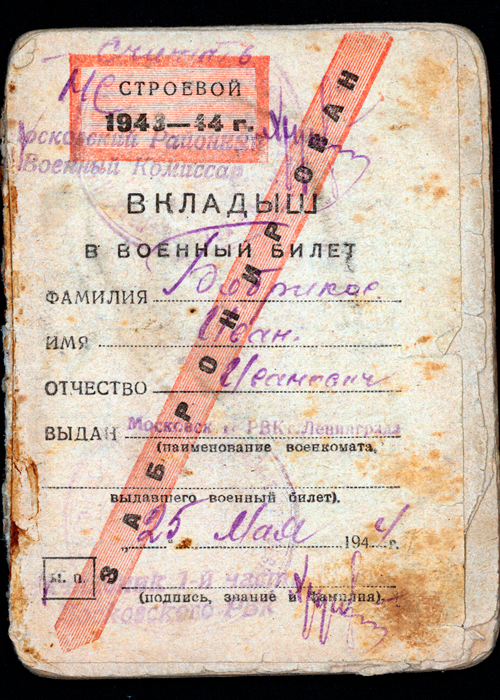 Считать
МС
СТРОЕВОЙ
1943—44 г.
Московский Районный
Военный Комиссар
ВКЛАДЫШ
В ВОЕННЫЙ БИЛЕТ
ФАМИЛИЯ
ИМЯ Иван.
ОТЧЕСТВО Иванович
ВЫДАН Московск РВК г. Ленинграда
(наименование военкомата,
выдавшего военный билет).
25 Мая 1944 г.
М. П.
1-й части
(подпись, звание и фамилия).
Московского РВК
ЗАБРОНИРОВАН